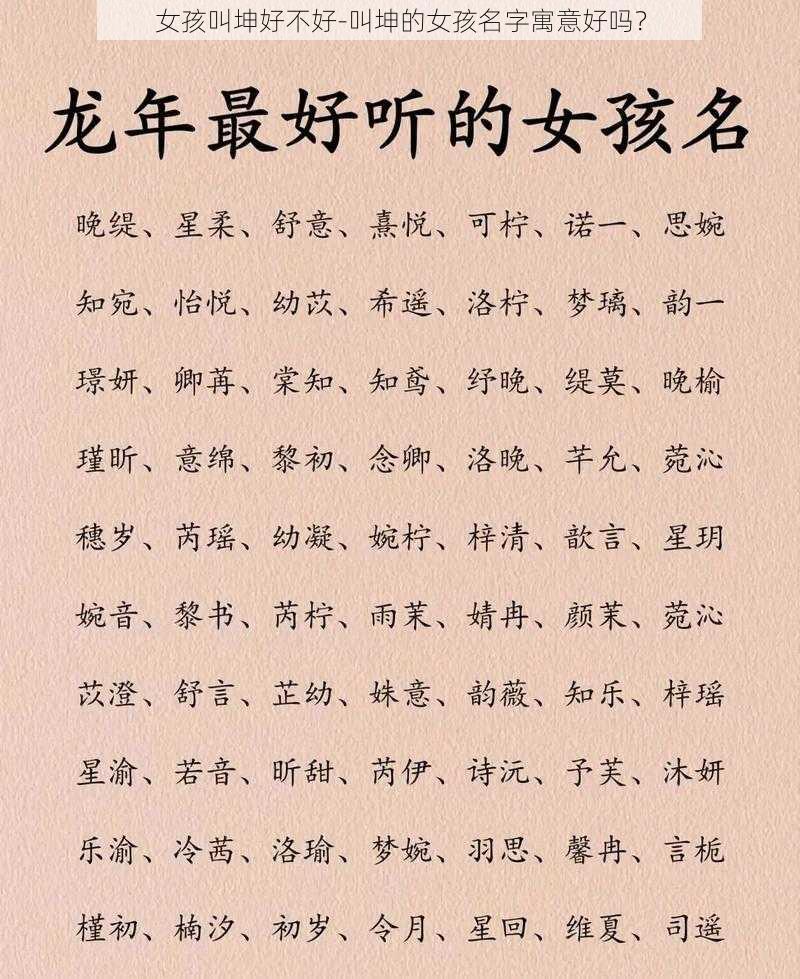 女孩叫坤好不好-叫坤的女孩名字寓意好吗？
龙年最好听的女孩名
晚缇、星柔、舒意、熹悦、可柠、诺一、思婉
知宛、怡悦、幼苡、希遥、洛柠、梦璃、韵一
璟妍、卿苒、棠知、知鸢、纾晚、缇莫、晚榆
瑾昕、意绵、黎初、念卿、洛晚、芊允、菀沁
穗岁、芮瑶、幼凝、婉柠、梓清、歆言、星玥
婉音、黎书、芮柠、雨茉、婧冉、颜茉、菀沁
苡澄、舒言、芷幼、姝意、韵薇、知乐、梓瑶
星渝、若音、昕甜、芮伊、诗沅、予芙、沐妍
乐渝、冷茜、洛瑜、梦婉、羽思、馨冉、言栀
槿初、楠汐、初岁、令月、星回、维夏、司遥